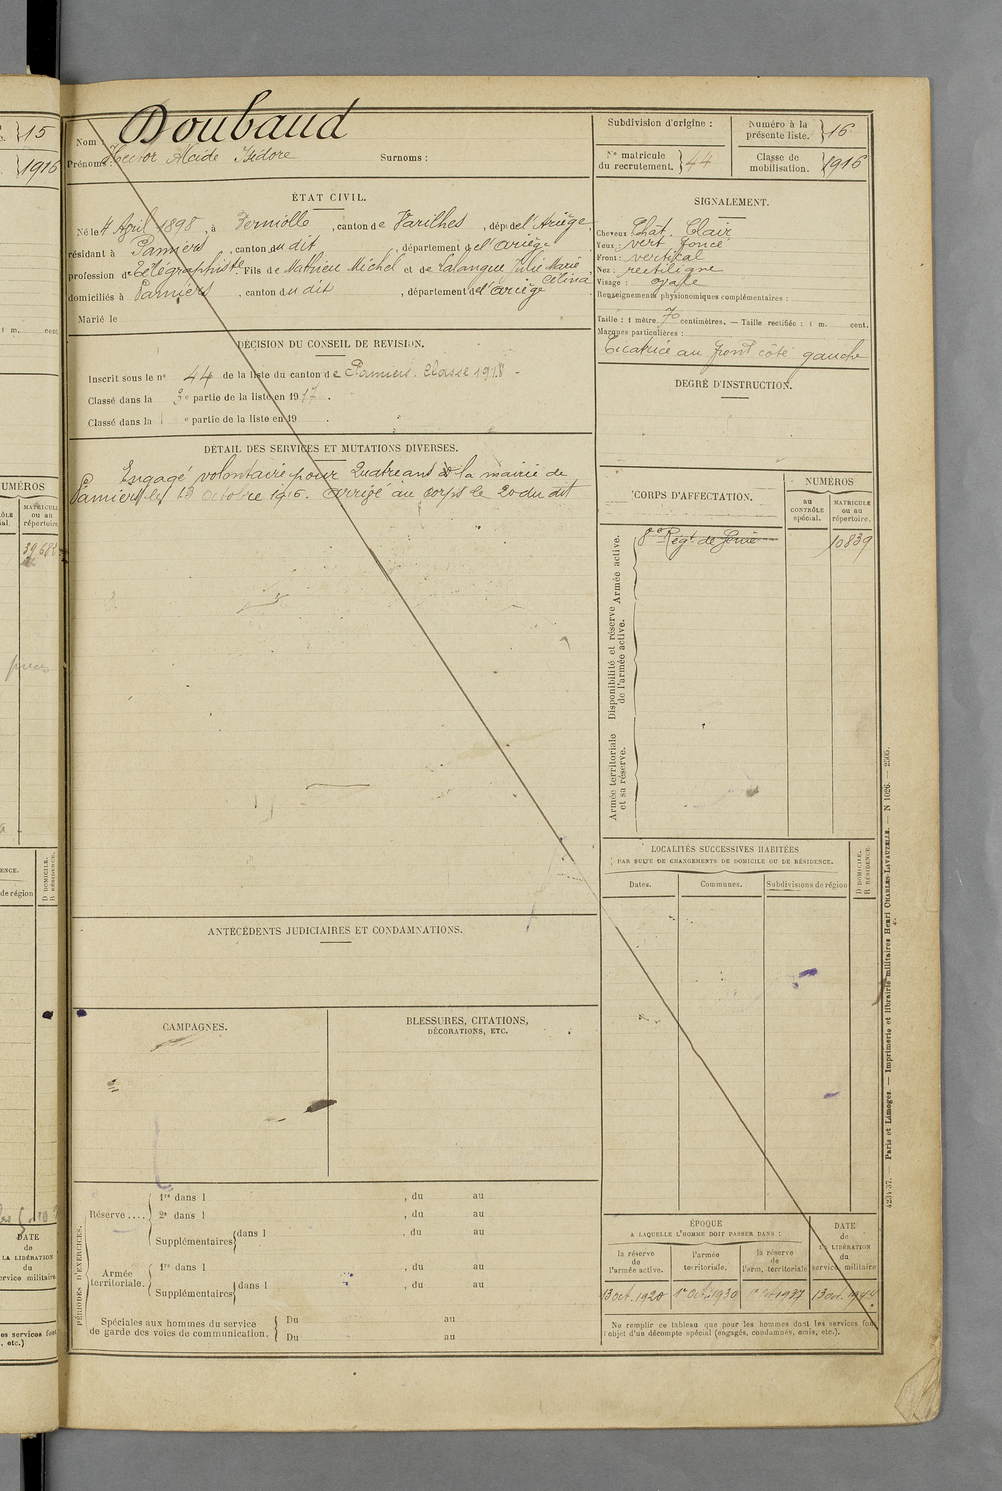 15
1916
NUMÉROS
MATRICULE
ou au
répertoire.
D DOMICILE.
R RÉSIDENCE.
de région
DATE
de
LA LIBÉRATION
du
service militaire
Nom : Doubaud
Prénoms : Hector Alcide Isidore Surnoms :
ÉTAT CIVIL.
Né le 4 April 1898, à Verniolle, canton de Varilhes, dépt de l'Ariège,
résidant à Pamiers, canton du dit, département de l'Ariège
profession de télégraphiste Fils de Mathieu Michel et de Lalangue Julie Marie
Célina
domiciliés à Pamiers, canton du dit, département de l'Ariège
Marié le
DÉCISION DU CONSEIL DE REVISION.
Inscrit sous le n° 44 de la liste du canton de Pamiers. Classe 1918 -
Classé dans la 3e partie de la liste en 1917.
Classé dans la 1 e partie de la liste en 19 .
DÉTAIL DES SERVICES ET MUTATIONS DIVERSES.
Engagé volontaire pour quatre ans à la mairie de
Pamiers le 13 octobre 1916. Arrivé au corps le 20 du dit
ANTÉCÉDENTS JUDICIAIRES ET CONDAMNATIONS.
CAMPAGNES.
BLESSURES, CITATIONS,
DÉCORATIONS, ETC.
PÉRIODES D'EXERCICES.
Réserve....
1re dans l , du au
2e dans l , du au
Supplémentaires dans l , du au
Armée
territoriale.
1re dans l , du au
Supplémentaires dans l , du au
Spéciales aux hommes du service
de garde des voies de communication.
Du au
Du au
Subdivision d'origine :
Numéro à la
présente liste. 16
N° matricule
du recrutement. 44
Classe de
mobilisation. 1916
SIGNALEMENT.
Cheveux Chat. Clair
Yeux : vert foncé
Front : vertical
Nez : rectiligne
Visage : ovale
Renseignements physionomiques complémentaires :
Taille : 1 mètre 70 centimètres. — Taille rectifiée : 1 m. cent.
Marques particulières :
Cicatrice au front côté gauche
DEGRÉ D'INSTRUCTION.
CORPS D'AFFECTATION.
NUMÉROS
au
CONTRÔLE
spécial.
MATRICULE
ou au
répertoire.
Armée active.
8e Régt de Génie
10839
Disponibilité et réserve
de l'armée active.
Armée territoriale
et sa réserve.
LOCALITÉS SUCCESSIVES HABITÉES
PAR SUITE DE CHANGEMENTS DE DOMICILE OU DE RÉSIDENCE.
Dates. Communes. Subdivisions de région
D DOMICILE.
R RÉSIDENCE.
ÉPOQUE
A LAQUELLE L'HOMME DOIT PASSER DANS :
la réserve
de
l'armée active.
l'armée
territoriale.
la réserve
de
l'arm. territoriale
DATE
de
LA LIBÉRATION
du
service militaire
13 oct. 1920
1er Oct. 1930
1er Oct 1937
13 oct. 1944
Ne remplir ce tableau que pour les hommes dont les services font
l'objet d'un décompte spécial (engagés, condamnés, omis, etc.).
4234-37. — Paris et Limoges. — Imprimerie et librairie militaires Henri CHARLES-LAVAUZELLE. — N 1026. — 2505.